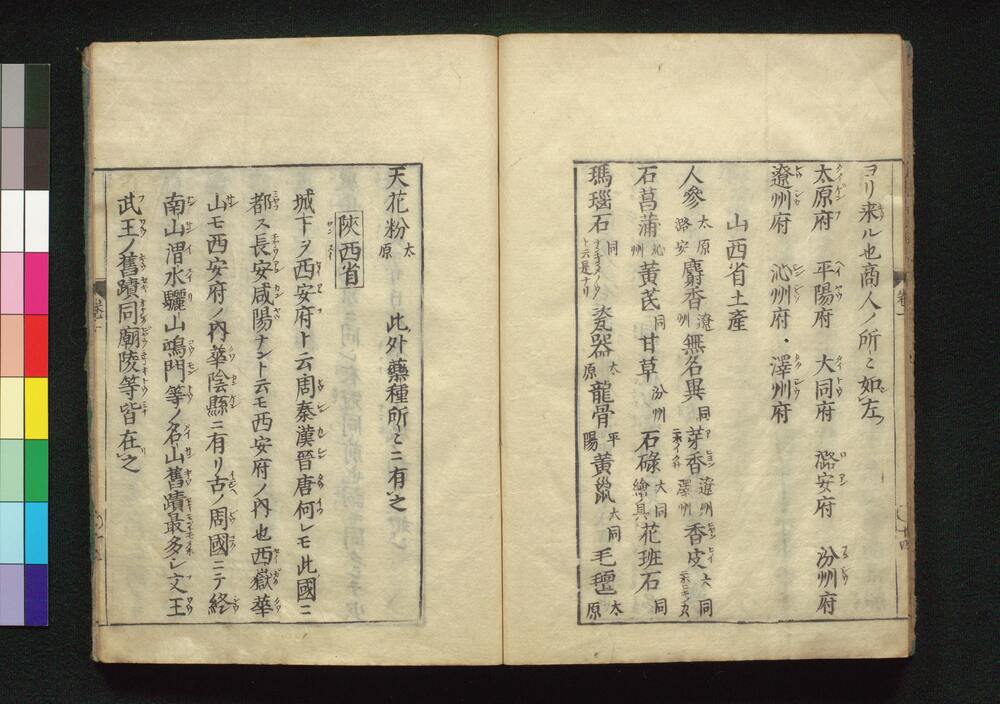 ヨリ来ル也商人ノ所〻如左
太原府　平陽府　大同府　潞安府　汾州府
遼州府　沁州府・澤州府
山西省土産
人參 太原 潞安 麝香 遼州 無名異 同 芽香 遼州 澤州 香皮 大同
石菖蒲 沁州 黄芪 同 甘草 汾州 石碌 大同 繪ノ具 花班石 同
瑪瑙石 同 瓷器 太原 龍骨 平陽 黄鼠 大同 毛氊 太原
天花粉 太原 此外藥種所〻ニ有之
陝西省
城下ヲ西安府ト云周秦漢晉唐何レモ此國ニ
都ス長安咸陽ナント云モ西安府ノ内也西嶽華
山モ西安府ノ内華陰縣ニ有リ古ノ周國ニテ終
南山渭水驪山鳴門等ノ名山舊蹟最多シ文王
武王ノ舊蹟同廟陵等皆在之
卷一